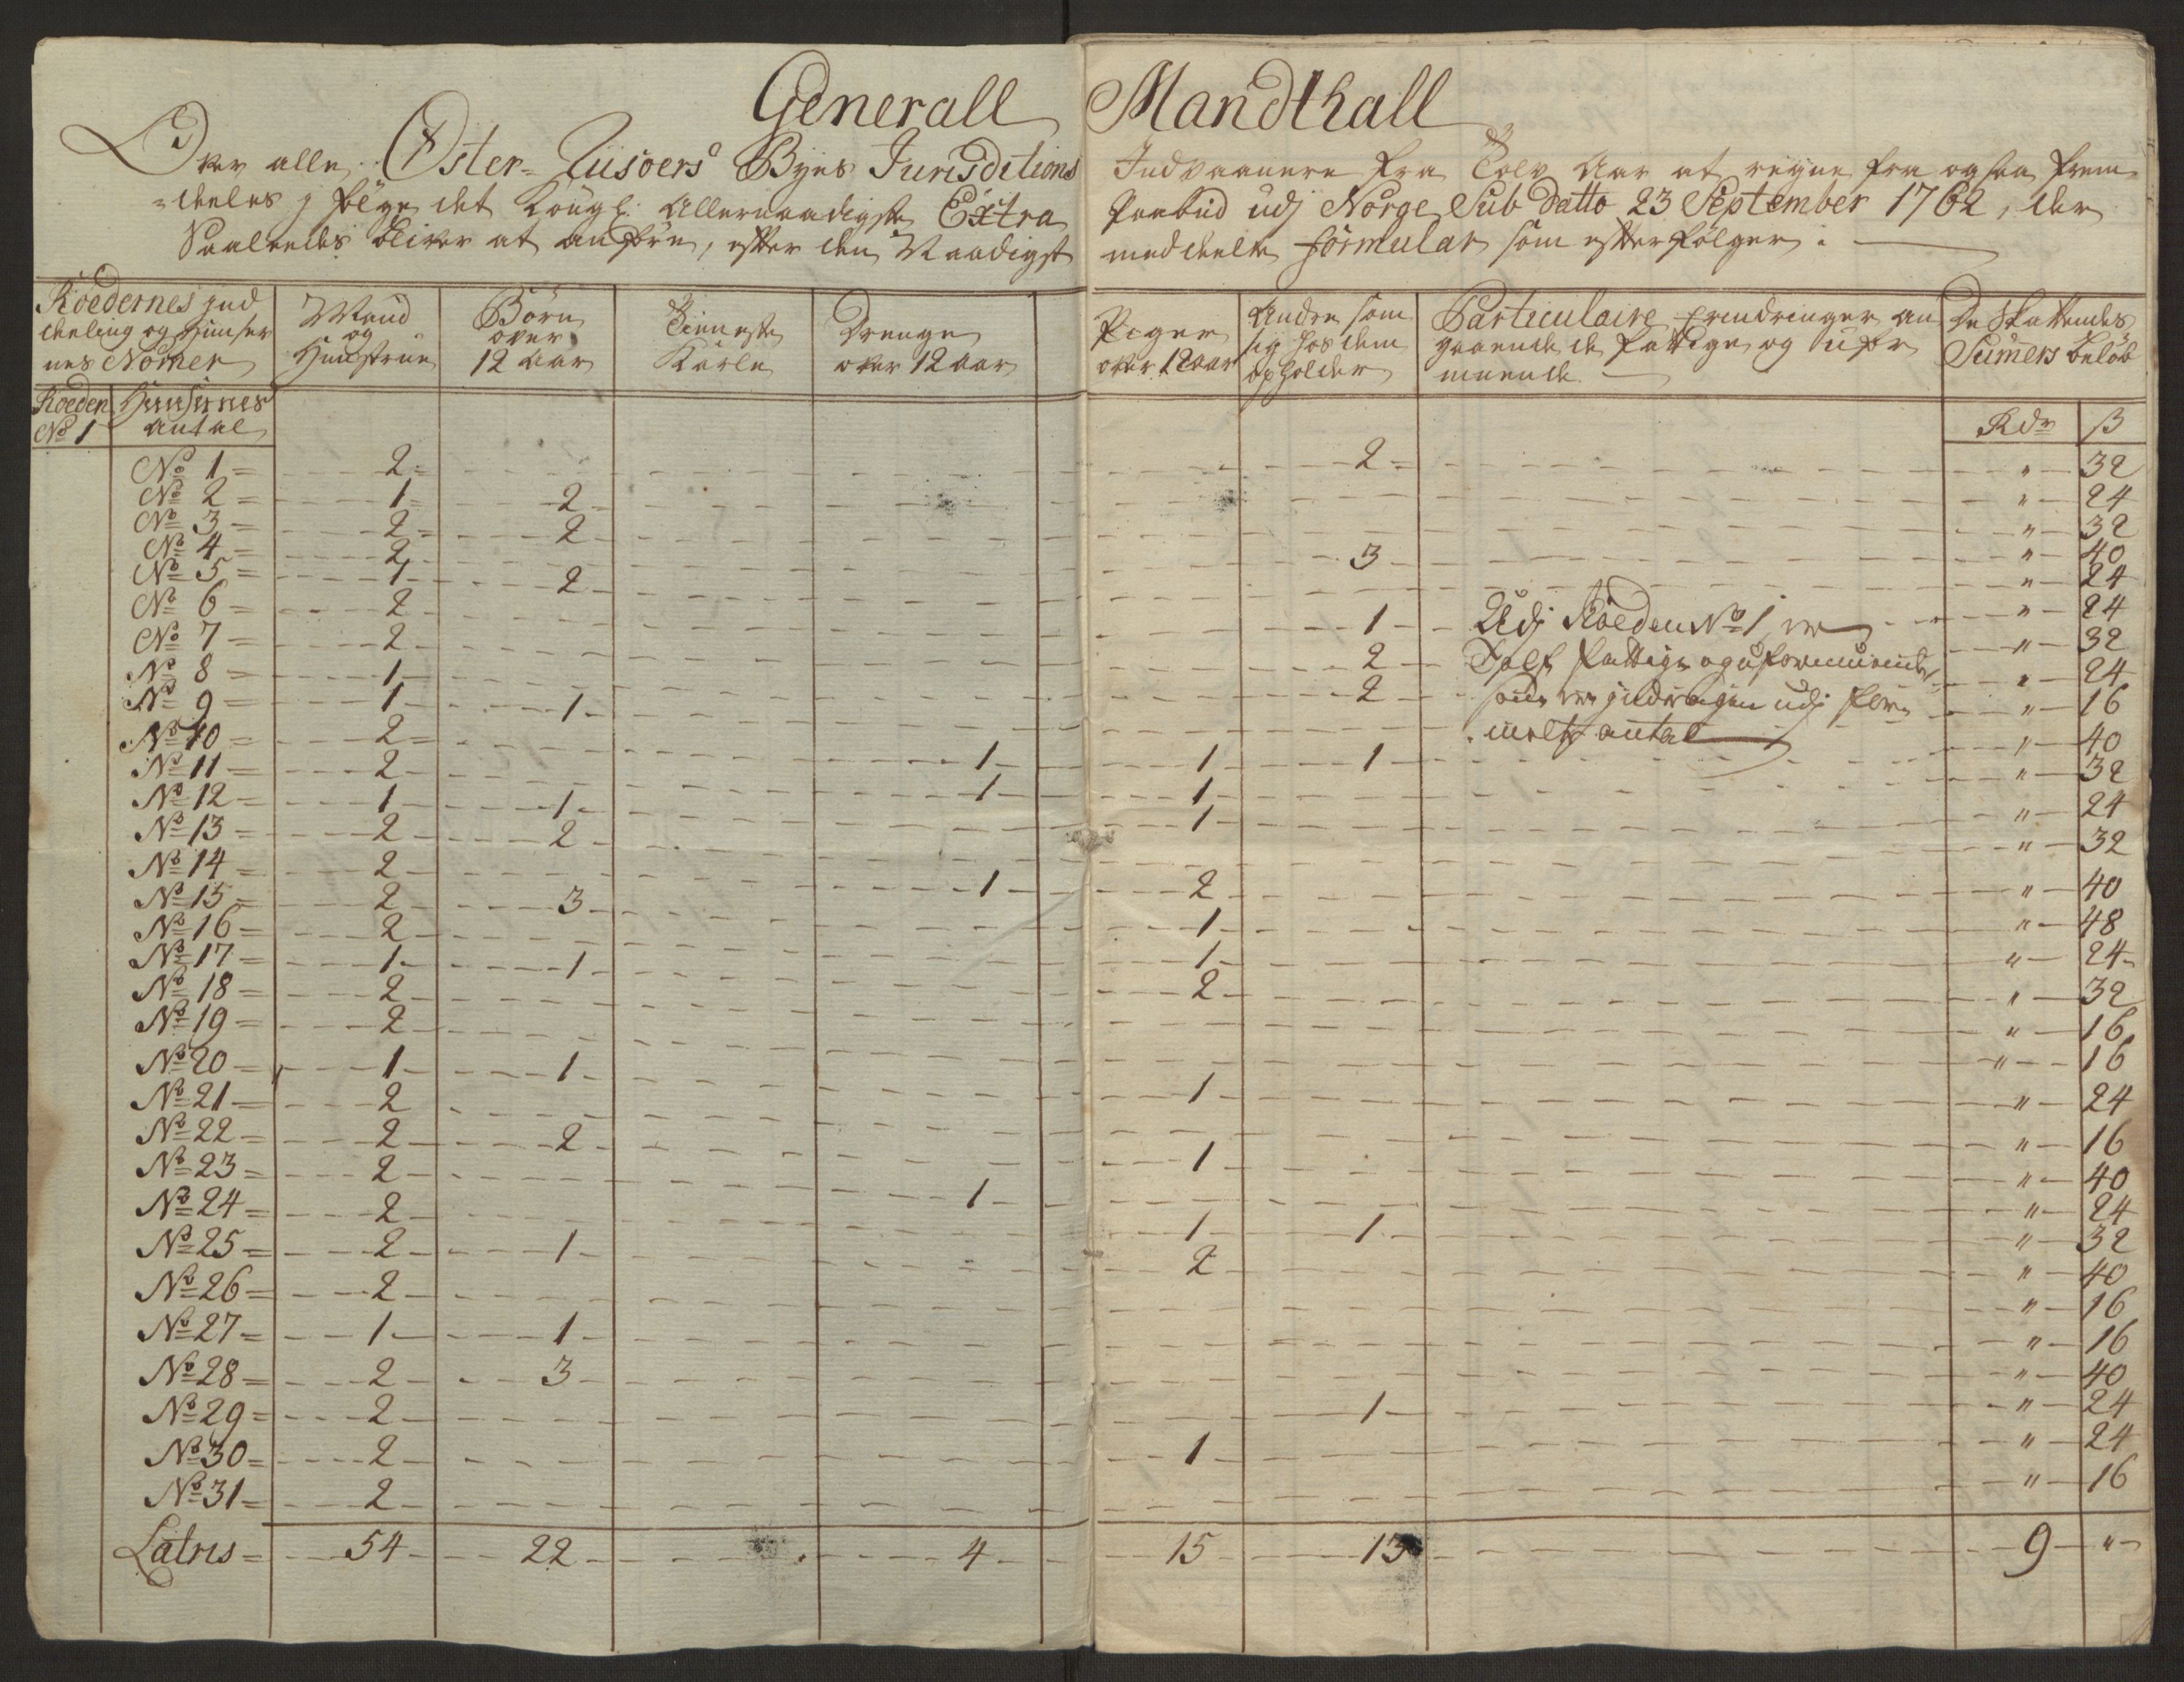 Generall Mandthall
Over alle Øster-Riisøers Byes Jurisditions Indvaanere fra Tolv Aar at regne fra ogsaa frem-
=deeles j følge det Kongl: Allernaadigste Extra Paabud udj Norge Sub Datto 23 September 1762, der
Saaledes bliver at anføre, efter den Naadigst meddeelte Formular som efterfølger:
Roedernes jnd Mand Børn Tieneste Drenge Piger Andre som Particulaire Erindringer an De Skattendes
deeling og Huuser og over Karle over 12 aar over 12 aar sig hos dem gaaende de fattige og ufor Summers beløb
nes Nomer Hustrue 12 aar opholder muende
Roeden Huusernes
No 1 antal Rdr ß
No 1 = 2 = 2 = " 32
No 2 = 1 2 " 24
No 3 = 2 2 " 32
No 4 = 2 3 " 40
No 5 = 1 2 " 24
No 6 = 2 1 Udj Roeden No 1, er " 24
No 7 = 2 2 Tolf fattige og uformuende " 32
No 8 = 1 2 som er jnddragen udj for= " 24
No 9 = 1 1 melte antal " 16
No 10 = 2 1 1 1 " 40
No 11 = 2 1 1 " 32
No 12 = 1 1 1 " 24
No 13 = 2 2 " 32
No 14 = 2 1 2 " 40
No 15 = 2 3 1 " 48
No 16 = 2 1 " 24
No 17 = 1 1 2 " 32
No 18 = 2 " 16
No 19 = 2 " 16
No 20 = 1 1 1 " 24
No 21 = 2 " 16
No 22 = 2 2 1 " 40
No 23 = 2 1 " 24
No 24 = 2 1 1 " 32
No 25 = 2 1 2 " 40
No 26 = 2 " 16
No 27 = 1 1 " 16
No 28 = 2 3 " 40
No 29 = 2 1 " 24
No 30 = 2 1 " 24
No 31 = 2 " 16
Latris = 54 22 4 15 13 9 "